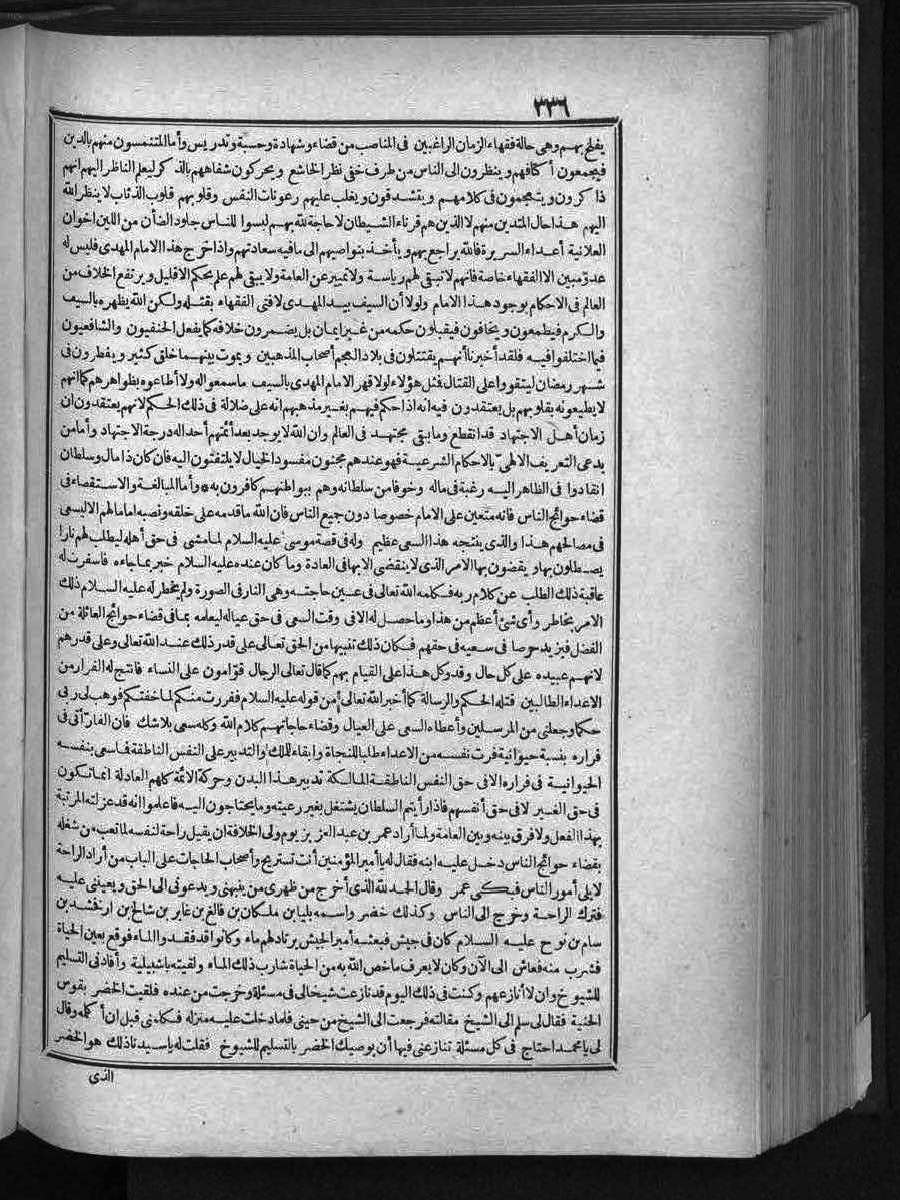 ٣٣٦
يفلح بهم وهى حالة فقهاء الزمان الراغبين فى المناصب من قضاء وشهادة وحسبة وتدريس وأما المتنمسون منهم بالدين
فيجمعون أكافهم وينظرون الى الناس من طرف خفى نظر الخاشع ويحركون شفاههم بالذكر ليعلم الناظر اليهم انهم
ذاكرون ويتعجمون فى كلامهم ويتشدقون ويغلب عليهم رعونات النفس وقلوبهم قلوب الذئاب لا ينظر الله
اليهم هذا حال المتدين منهم لا الذين هم قرناء الشيطان لا حاجة لله بهم لبسوا للناس جلود الضأن من اللين اخوان
العلانية أعداء السريرة فالله يراجع بهم ويأخذ بنواصيهم الى مافيه سعادتهم واذا خرج هذا الامام المهدى فليس له
عدوّ مبين الا الفقهاء خاصة فانهم لا تبقى لهم رياسة ولا تمييز عن العامة ولا يبقى لهم علم بحكم الا قليل ويرتفع الخلاف من
العالم فى الاحكام بوجود هذا الامام ولولا أن السيف بيد المهدى لافتى الفقهاء بقتله ولكن الله يظهره بالسيف
والكرم فيطمعون ويخافون فيقبلون حكمه من غير ايمان بل يضمرون خلافه كما يفعل الحنفيون والشافعيون
فيما اختلفوا فيه فلقد أخبرنا أنهم يقتتلون فى بلاد العجم أصحاب المذهبين ويموت بينهما خلق كثير ويفطرون فى
شهر رمضان ليتقووا على القتال فمثل هؤلاء لولا قهر الامام المهدى بالسيف ماسمعوا له ولا أطاعوه بظواهرهم كما انهم
لا يطيعونه بقلوبهم بل يعتقدون فيه انه اذا حكم فيهم بغير مذهبهم انه على ضلالة فى ذلك الحكم لانهم يعتقدون ان
زمان أهل الاجتهاد قد انقطع وما بقى مجتهد فى العالم وان الله لا يوجد بعد أئمتهم أحدا له درجة الاجتهاد وأما من
يدعى التعريف الالهىّ بالاحكام الشرعية فهو عندهم مجنون مفسود الخيال لا يلتفتون اليه فان كان ذا مال وسلطان
انقادوا فى الظاهر اليه رغبة فى ماله وخوفا من سلطانه وهم ببواطنهم كافرون به * وأما المبالغة والاستقصاء فى
قضاء حوائج الناس فانه متعين على الامام خصوصا دون جميع الناس فان الله ما قدمه على خلقه ونصبه اماما لهم الا ليسعى
فى مصالحهم هذا والذى ينتجه هذا السعى عظيم وله فى قصة موسى عليه السلام لما مشى فى حق أهله ليطلب لهم نارا
يصطلون بها ويقضون بها الامر الذى لا ينقضى الا بها فى العادة وما كان عنده عليه السلام خبر بما جاءه فاسفرت له
عاقبة ذلك الطلب عن كلام ربه فكلمه الله تعالى فى عين حاجته وهى النار فى الصورة ولم يخطر له عليه السلام ذلك
الامر بخاطر وأى شئ أعظم من هذا وما حصل له الا فى وقت السعى فى حق عياله ليعلمه بما فى قضاء حوائج العائلة من
الفضل فيزيد حرصا فى سعيه فى حقهم فكان ذلك تنبيها من الحق تعالى على قدر ذلك عند الله تعالى وعلى قدرهم
لانهم عبيده على كل حال وقد وكل هذا على القيام بهم كما قال تعالى الرجال قوّامون على النساء فانتج له الفرار من
الاعداء الطالبين قتله الحكم والرسالة كما أخبر الله تعالى من قوله عليه السلام ففررت منكم لما خفتكم فوهب لى ربى
حكما وجعلنى من المرسلين وأعطاه السعى على العيال وقضاء حاجاتهم كلام الله وكله سعى بلا شك فان الفارّ أتى فى
فراره بنسبة حيوانية فرت نفسه من الاعداء طلبا للنجاة وابقاء للملك والتدبير على النفس الناطقة فما سعى بنفسه
الحيوانية فى فراره الا فى حق النفس الناطقة المالكة تدبير هذا البدن وحركة الائمة كلهم العادلة انما تكون
فى حق الغير لا فى حق أنفسهم فاذا رأيتم السلطان يشتغل بغير رعيته وما يحتاجون اليه فاعلموا انه قد عزلته المرتبة
بهذا الفعل ولا فرق بينه وبين العامة ولما أراد عمر بن عبد العزيز يوم ولى الخلافة ان يقيل راحة لنفسه لما تعب من شغله
بقضاء حوائج الناس دخل عليه ابنه فقال له يا أمير المؤمنين أنت تستريح وأصحاب الحاجات على الباب من أراد الراحة
لا يلى أمور الناس فبكى عمر وقال الحمد لله الذى أخرج من ظهرى من ينبهنى ويدعونى الى الحق ويعيننى عليه
فترك الراحة وخرج الى الناس وكذلك خضر واسمه بليا بن ملكان بن فالغ بن غابر بن شالخ بن ارفخشد بن
سام بن نوح عليه السلام كان فى جيش فبعثه أمير الجيش يرتاد لهم ماء وكانوا قد فقدوا الماء فوقع بعين الحياة
فشرب منه فعاش الى الآن وكان لا يعرف ما خص الله به من الحياة شارب ذلك الماء ولقيته باشبيلية وأفادنى التسليم
للشيوخ وان لا أنازعهم وكنت فى ذلك اليوم قد نازعت شيخا لى فى مسئلة وخرجت من عنده فلقيت الخضر بقوس
الحنية فقال لى سلم الى الشيخ مقالته فرجعت الى الشيخ من حينى فلما دخلت عليه منزله فكلمنى قبل ان أكلمه وقال
لى يا محمد احتاج فى كل مسئلة تنازعنى فيها أن يوصيك الخضر بالتسليم للشيوخ فقلت له يا سيدنا ذلك هو الخضر
الذى